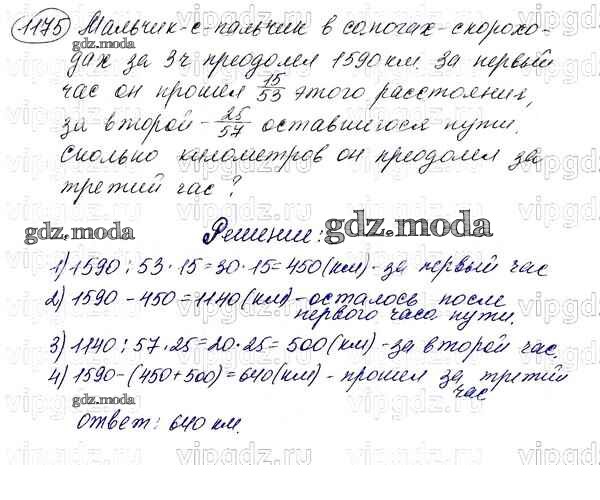 1175 Мальчик-с-пальчик в сапогах-скорохо-
дах за 3ч преодолел 1590 км. За первый
час он прошел 15/53 этого расстояния,
за второй - 25/57 оставшегося пути.
Сколько километров он преодолел за
третий час?
Решение:
1) 1590 : 53 · 15 = 30 · 15 = 450 (км) - за первый час
2) 1590 - 450 = 1140 (км) - осталось после
первого часа пути.
3) 1140 : 57 · 25 = 20 · 25 = 500 (км) - за второй час.
4) 1590 - (450 + 500) = 640 (км) - прошел за третий
час
ответ: 640 км.
gdz.moda
gdz.moda
gdz.moda
gdz.moda
gdz.moda
gdz.moda
vipgdz.ru